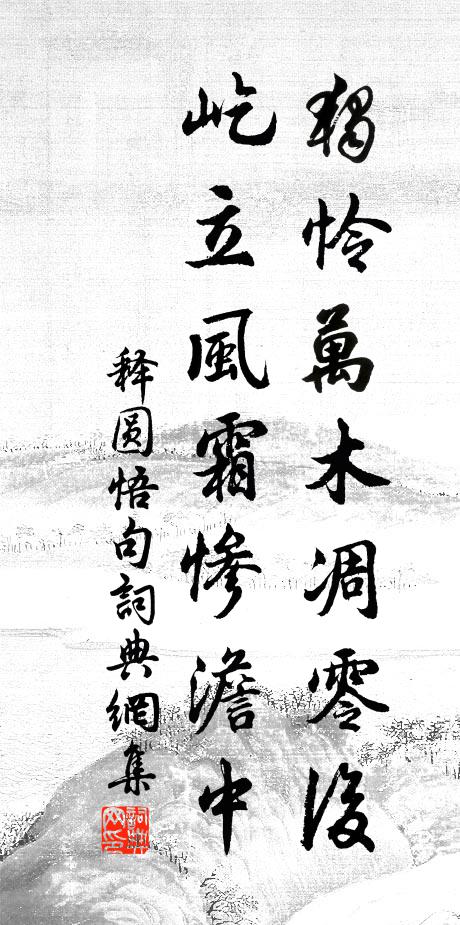 獨怜萬木凋零後
屹立風霜慘澹中
释圆悟句詞典網集